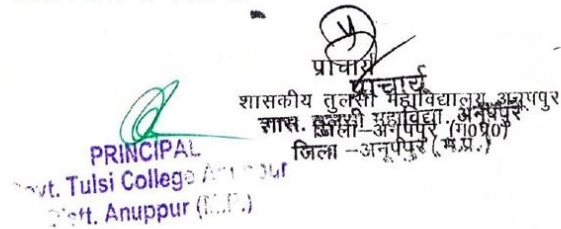 प्राचार्य
प्राचार्य
शासकीय तुलसी महाविद्यालय अनूपपुर
शास. तुलसी महाविद्या. अनूपपुर
जिला-अनूपपुर (म0प्र0)
जिला-अनूपपुर (म.प्र.)
PRINCIPAL
Govt. Tulsi College Anuppur
Distt. Anuppur (M.P.)